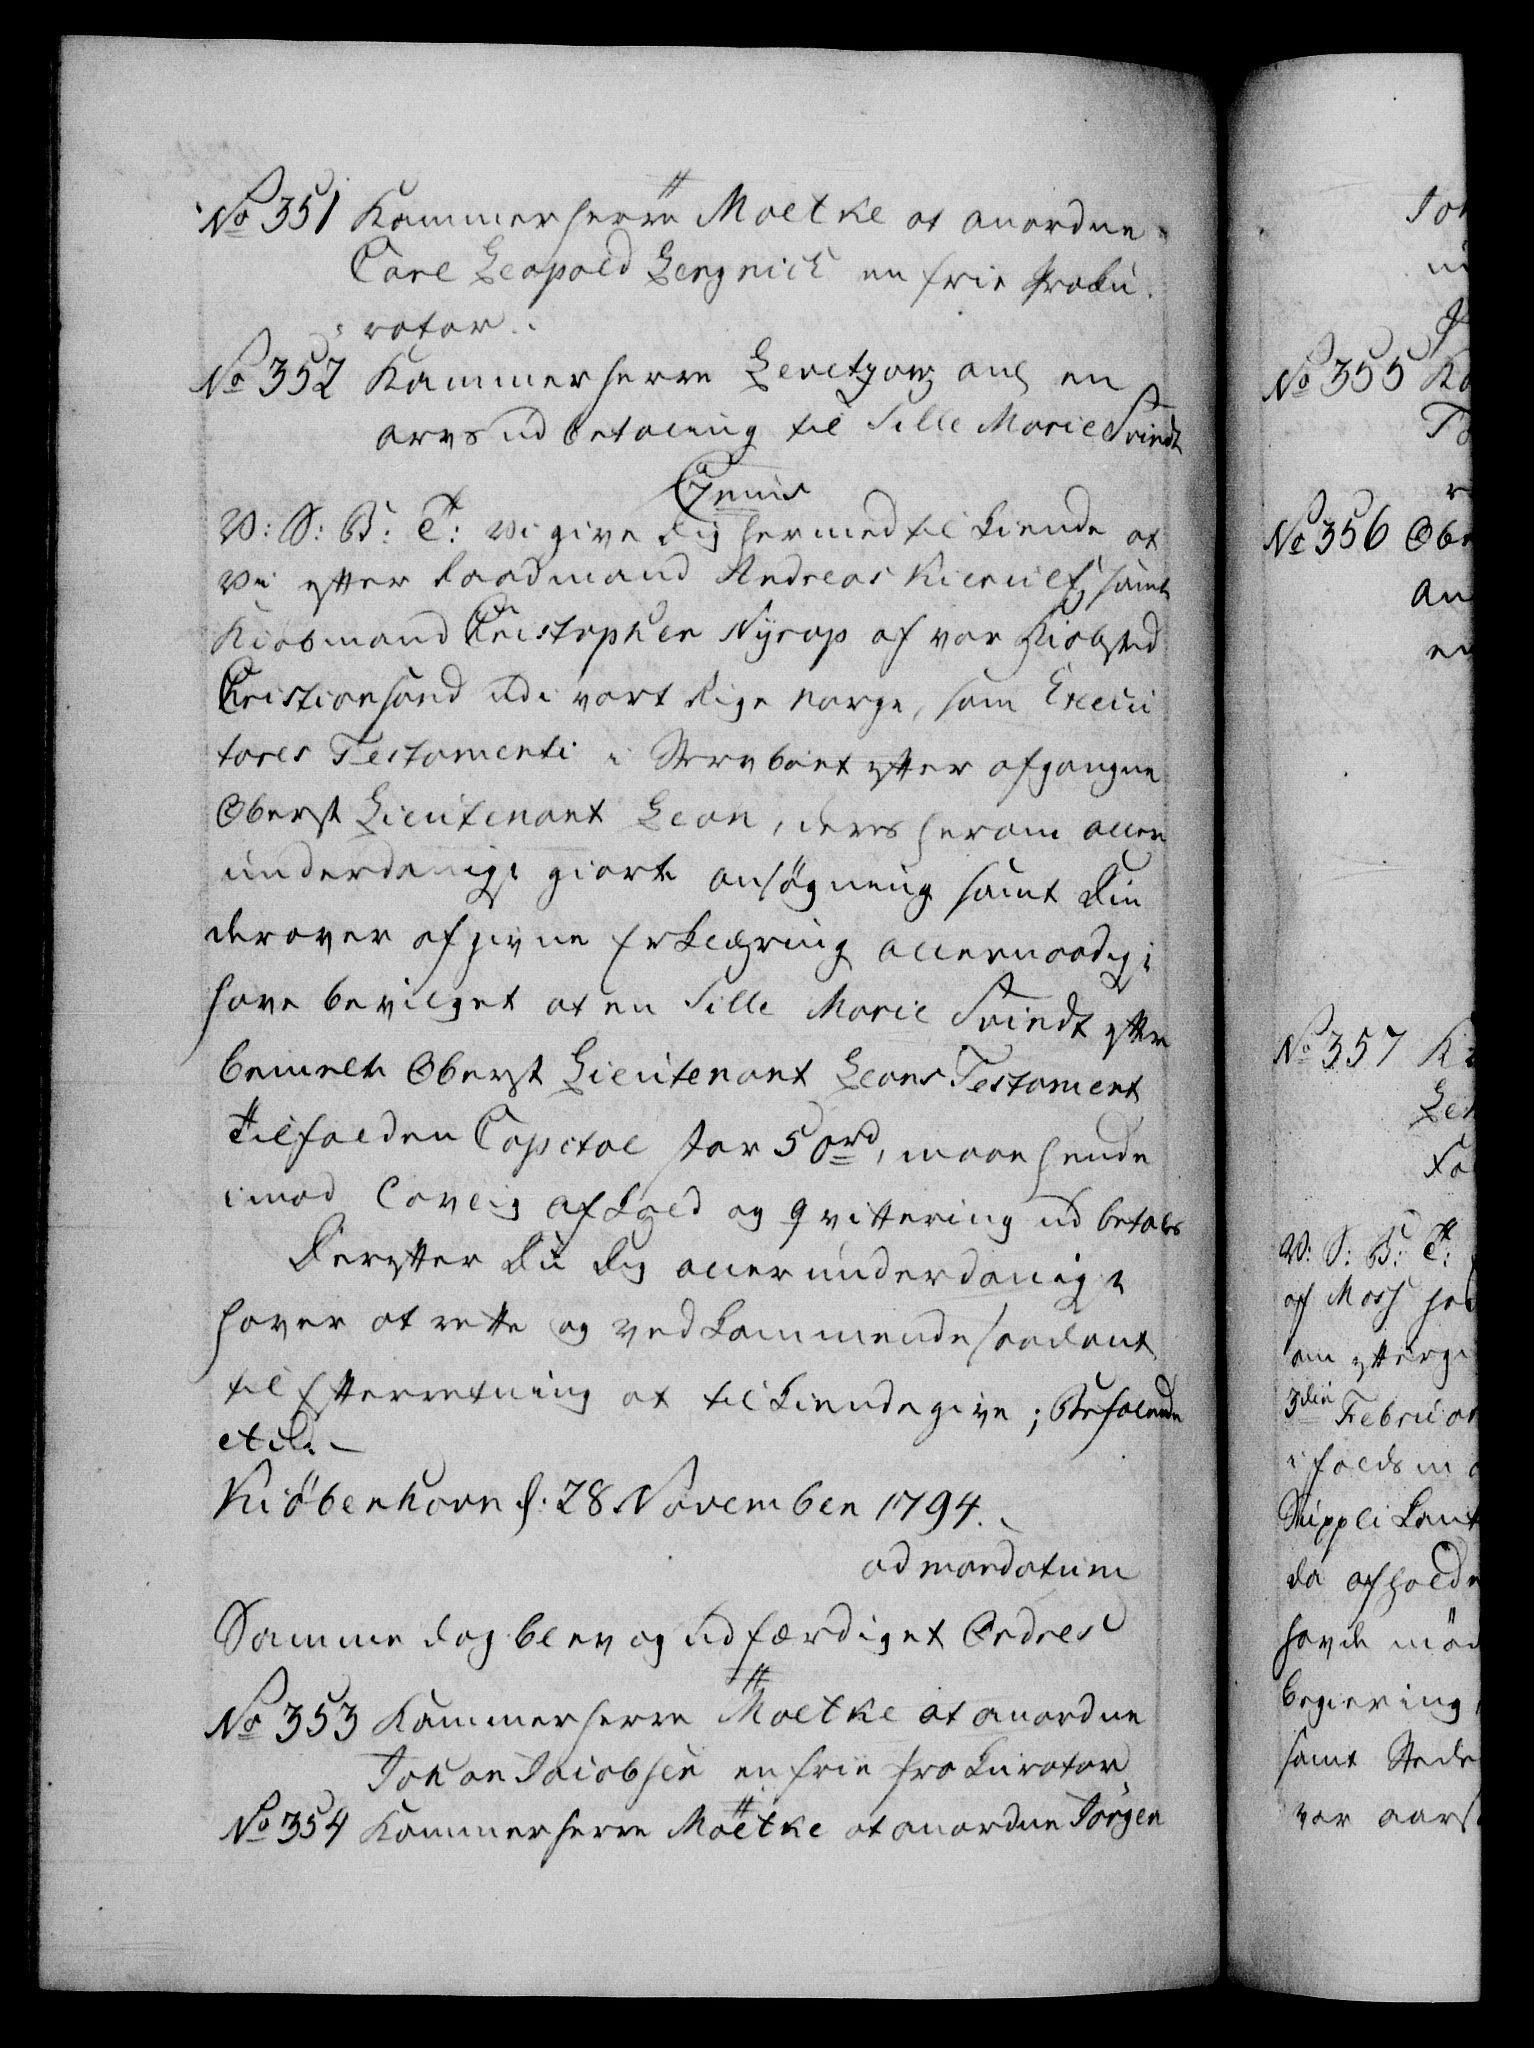 No 351 Kammerherre Moltke at anordne
Carl Leopold Lengnick en frie Proku
rator.
No 352 Kammerherre Levetzow ang en
arvs udbetaling til Sille Marie Svindt
Genius
V: S: B: T: Vi give dig hermed til kiende at
Vi efter Raadmand Andreas Kierulf samt
Kiøbmand Christopher Nyrop af vor Kiøbsted
Christiansand udi vort Rige Norge, som Execu
tores Testamenti i Stervboet efter afgangne
Oberst Lieutenant Leon, deres herom aller
underdanigst giorte ansøgning samt din
derover afgivne Erklæring allernaadigst
have bevilget at en Sille Marie Svindt efter
bemelte Oberst Lieutenant Leons Testament
tilfalden Capital stor 50 rd, maae hende
imod lovlig afkald og qvittering udbetales
Derefter du dig allerunderdanigst
haver at rette og vedkommende saadant
til Efterretning at tilkiendegive; Befalende
etc:
Kiöbenhavn d: 28 November 1794.
ad mandatum
Samme dag blev og udfærdiget Ordres
No 353 Kammerherre Moltke at anordne
Johan Jacobsen en frie prokurator
No 354 Kammerherre Moltke at anordne Jörgen
Joh
No 355 Ka
No 356 Obe
an
en
No 357 K
Len
V: S: B: T:
af Moss
om efterg
3die Februar
ifald
Suppli kant
da afhold
havde mød
begiering
samt Stede
vor aars